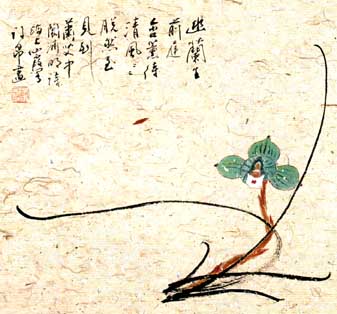 幽蘭生
前庭
含薰待
清風
脫然至
見別
蕭艾中
陶淵明詩
海上